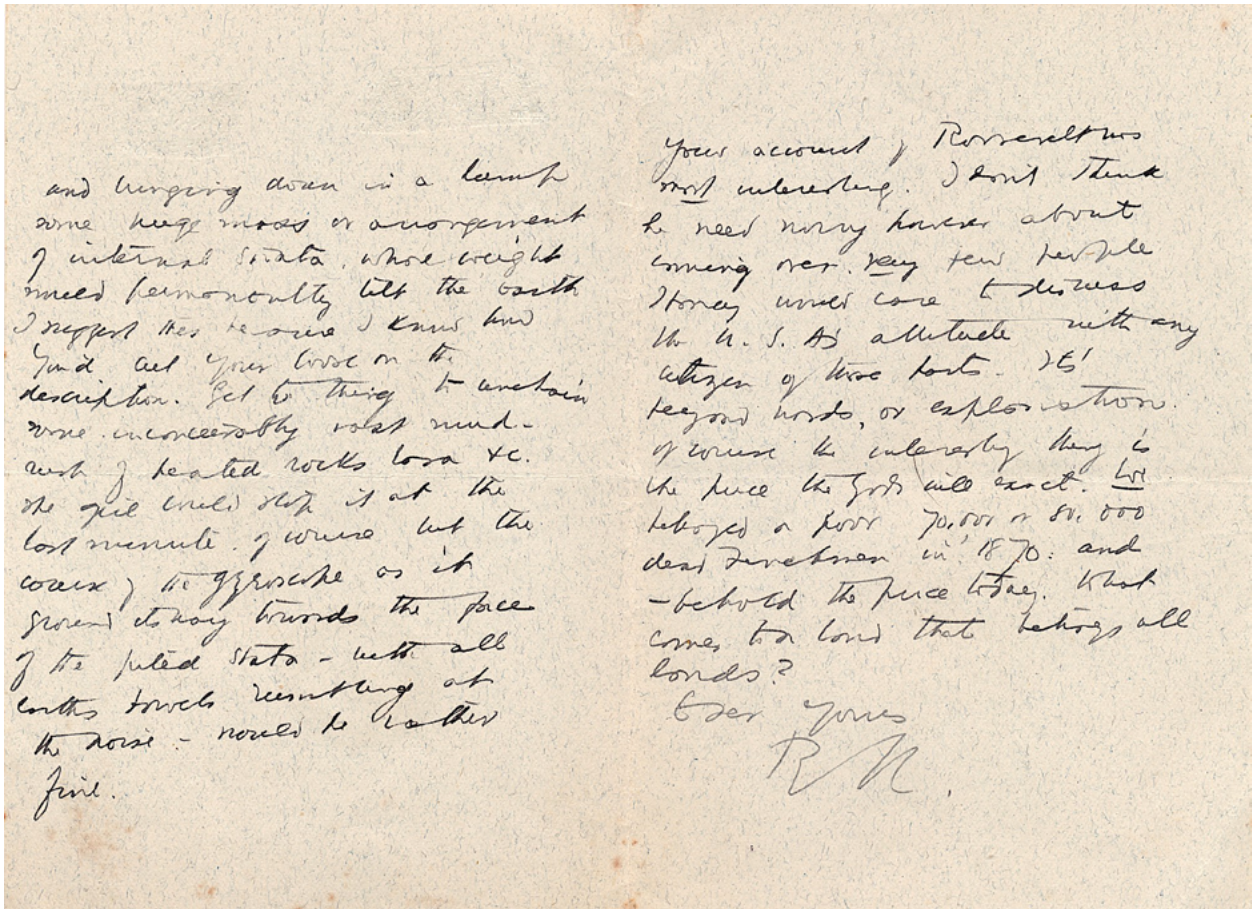 and bringing down in a lump
some huge mass or arrangement
of internal strata, whose weight
would permanently tilt the earth
I suggest this because I know how
you'd let yourself loose on the
description. Get the thing to unchain
some inconceivably vast mud-
rush of heated rocks lava &c.
She could stop it at the
last minute, of course but the
course of the gyroscope as it
ground its way towards the face
of the piled strata - with all
earths bowels rumbling at
the noise - would be rather
fine.
Your account of Roosevelt was
most interesting. I don't think
he need worry however about
coming over. Very few people
I fancy would care to discuss
the U. S. A's attitude with any
citizen of those parts. It's
beyond words, or explanation.
Of course the interesting thing is
the price the Gods will exact. We
betrayed a poor 70,000 or 80,000
dead Frenchmen in 1870: and
- behold the price today. What
comes to a land that betrays all
lands?
Ever yours
R K.